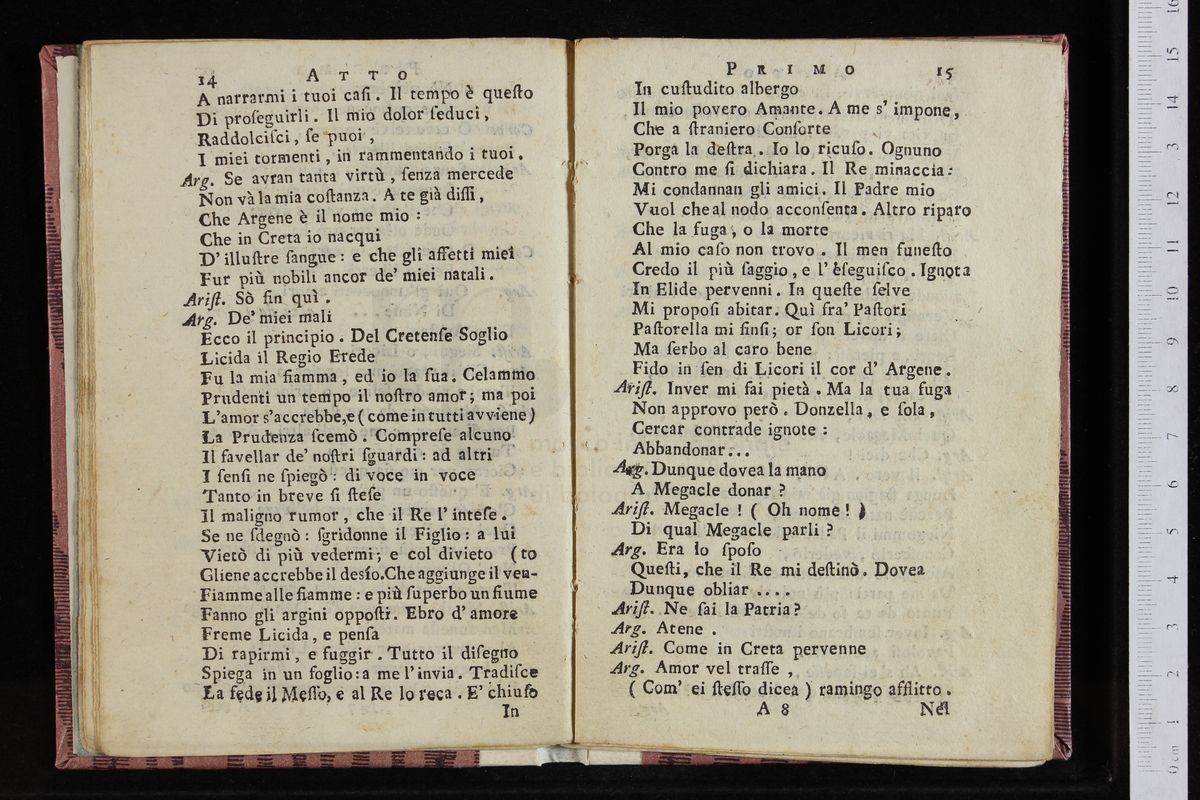 14 ATTO
A narrarmi i tuoi caſi. Il tempo è queſto
Di proſeguirli. Il mio dolor ſeduci,
Raddolciſci, ſe puoi,
I miei tormenti, in rammentando i tuoi.
Arg. Se avran tanta virtù, ſenza mercede
Non và la mia coſtanza. A te già diſſi,
Che Argene è il nome mio:
Che in Creta io nacqui
D' illuſtre ſangue: e che gli affetti miei
Fur più nobili ancor de' miei natali.
Ariſt. Sò fin quì.
Arg. De' miei mali
Ecco il principio. Del Cretenſe Soglio
Licida il Regio Erede
Fu la mia fiamma, ed io la ſua. Celammo
Prudenti un tempo il noſtro amor; ma poi
L'amor s'accrebbe,e (come in tutti avviene)
La Prudenza ſcemò. Compreſe alcuno
Il favellar de' noſtri ſguardi: ad altri
I ſenſi ne ſpiegò: di voce in voce
Tanto in breve ſi ſteſe
Il maligno rumor, che il Re l' inteſe.
Se ne ſdegnò: ſgridonne il Figlio: a lui
Vietò di più vedermi; e col divieto (to
Gliene accrebbe il desìo.Che aggiunge il ven-
Fiamme alle fiamme: e più ſuperbo un fiume
Fanno gli argini oppoſti. Ebro d' amore
Freme Licida, e penſa
Di rapirmi, e fuggir. Tutto il diſegno
Spiega in un foglio: a me l'invia. Tradiſce
La fede il Meſſo, e al Re lo reca. E' chiuſo
In
PRIMO 15
In cuſtudito albergo
Il mio povero Amante. A me s' impone,
Che a ſtraniero Conſorte
Porga la deſtra. Io lo ricuſo. Ognuno
Contro me ſi dichiara. Il Re minaccia:
Mi condannan gli amici. Il Padre mio
Vuol che al nodo acconſenta. Altro riparo
Che la fuga, o la morte
Al mio caſo non trovo. Il men funeſto
Credo il più ſaggio, e l' èſeguiſco. Ignota
In Elide pervenni. In queſte ſelve
Mi propoſi abitar. Quì fra' Paſtori
Paſtorella mi finſi; or ſon Licori;
Ma ſerbo al caro bene
Fido in ſen di Licori il cor d' Argene.
Ariſt. Inver mi fai pietà. Ma la tua fuga
Non approvo però. Donzella, e ſola,
Cercar contrade ignote:
Abbandonar...
Arg. Dunque dovea la mano
A Megacle donar?
Ariſt. Megacle! (Oh nome!)
Di qual Megacle parli?
Arg. Era lo ſpoſo
Queſti, che il Re mi deſtinò. Dovea
Dunque obliar....
Ariſt. Ne ſai la Patria?
Arg. Atene.
Ariſt. Come in Creta pervenne
Arg. Amor vel traſſe,
(Com' ei ſteſſo dicea) ramingo afflitto.
A 8 Nel